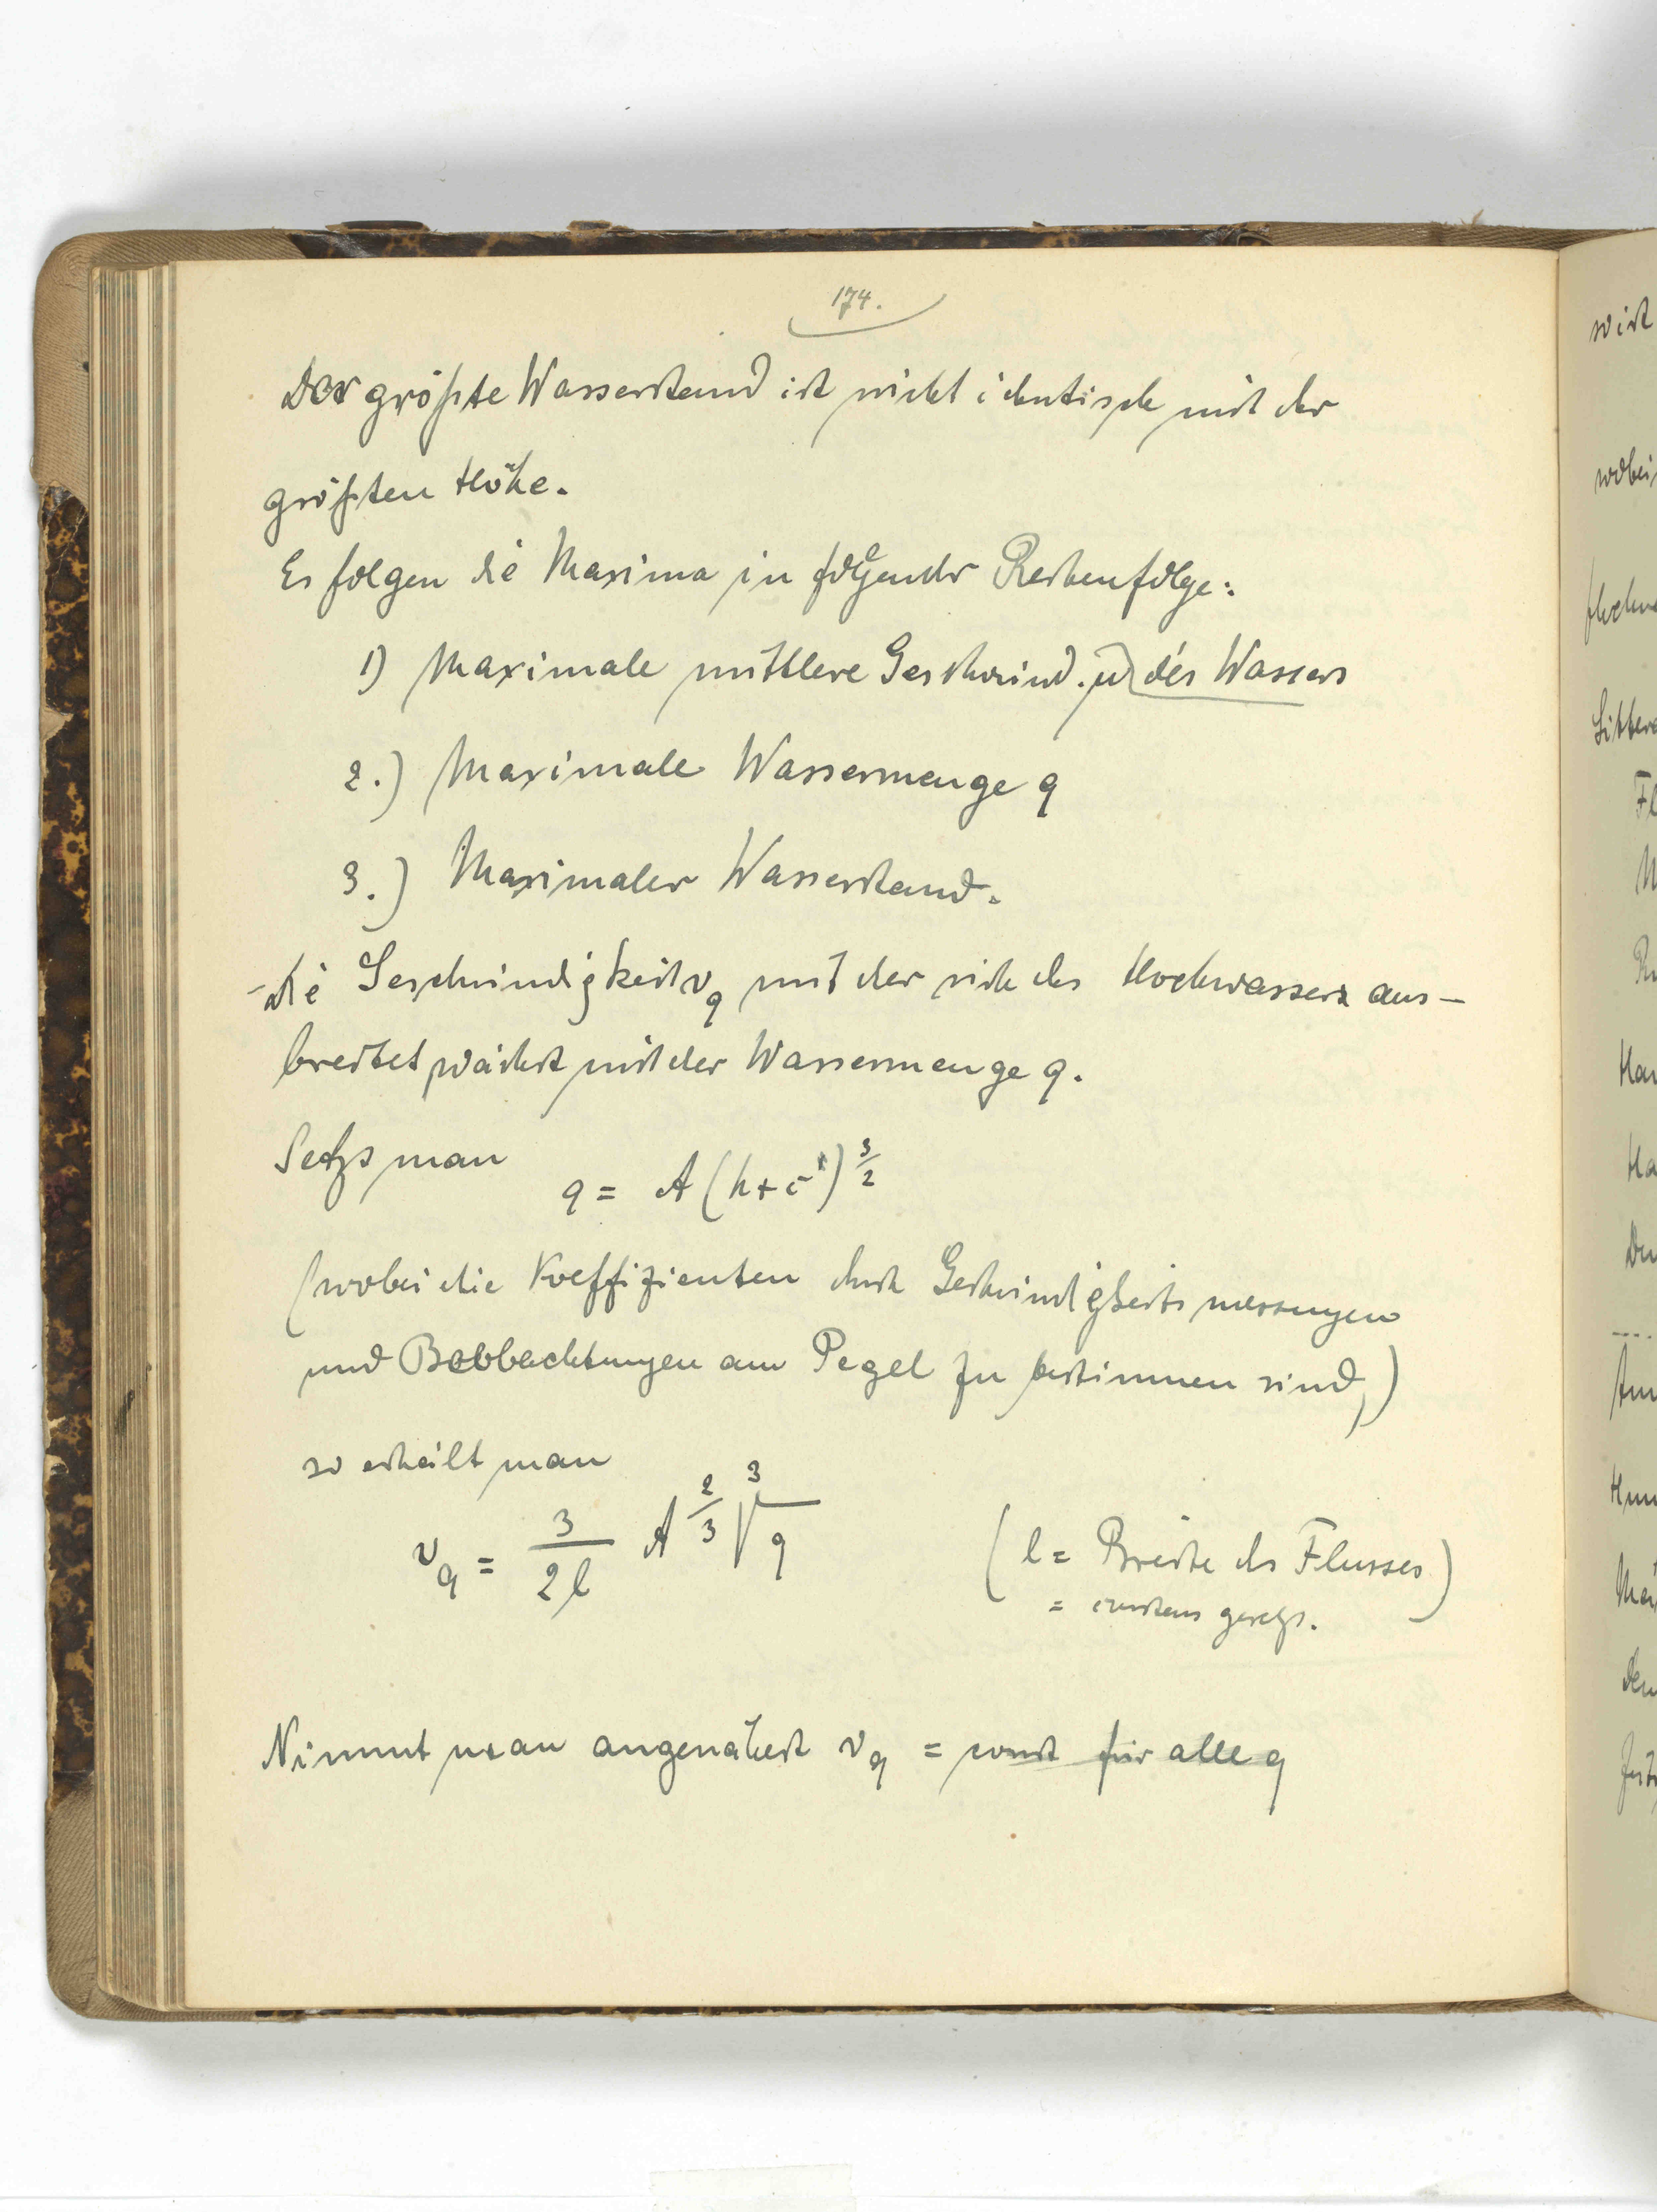 174.
Der größte Wasserstand ist nicht identisch mit der
größten Höhe.
Es folgen die Maxima in folgender Reihenfolge:
1) Maximale mittlere Geschwind. u des Wassers
2.) Maximale Wassermenge q
3.) Maximaler Wasserstand.
Die Geschwindigkeit v_q mit der sich des Hochwassers aus-
breitet wächst mit der Wassermenge q.
Setzt man
q = A (h + c)^{3/2}
(wobei die Koeffizienten durch Geschwindigkeitsmessungen
und Beobachtungen am Pegel zu bestimmen sind,)
so erhält man
v_q = 3/2l A^{2/3} ∛q
(l = Breite des Flusses
= constans gesetzt.)
Nimmt man angenähert v_q = const für alle q
wird
wobei